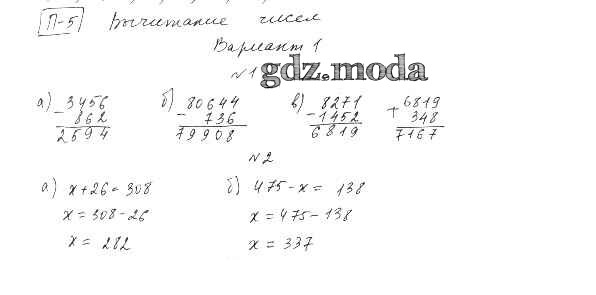 П-5 Вычитание чисел
Вариант 1
№1 gdz.moda
а) 3456 б) 80644 в) 8271 6819
- 862 - 736 - 1452 + 348
2594 79908 6819 7167
№2
а) x+26=308 б) 475-x= 138
x=308-26 x=475-138
x= 282 x= 337